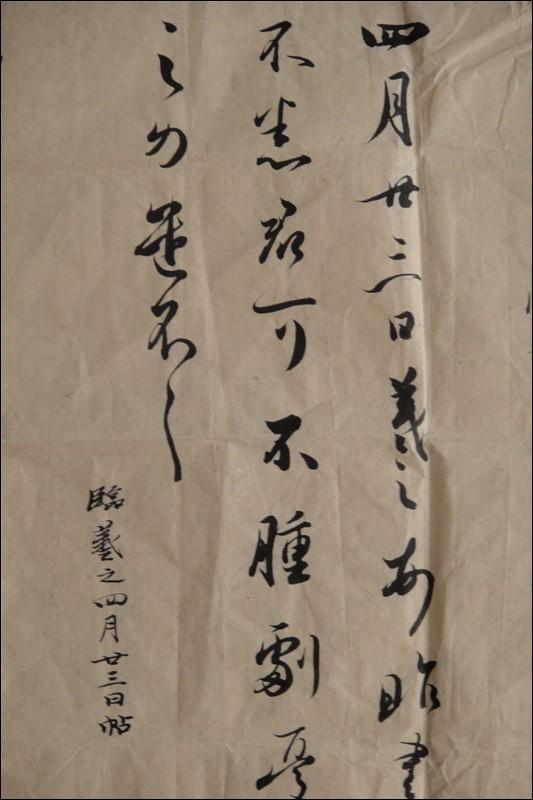 四月廿三日羲之昨書
不悉君可不腫劇憂
之力遣不
臨羲之四月廿三日帖